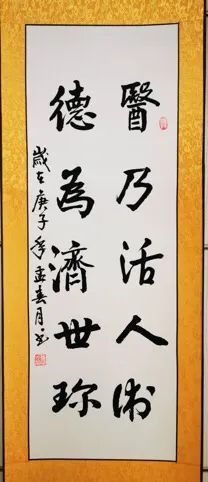 醫乃活人術
德為濟世珎
歲在庚子年孟春月書